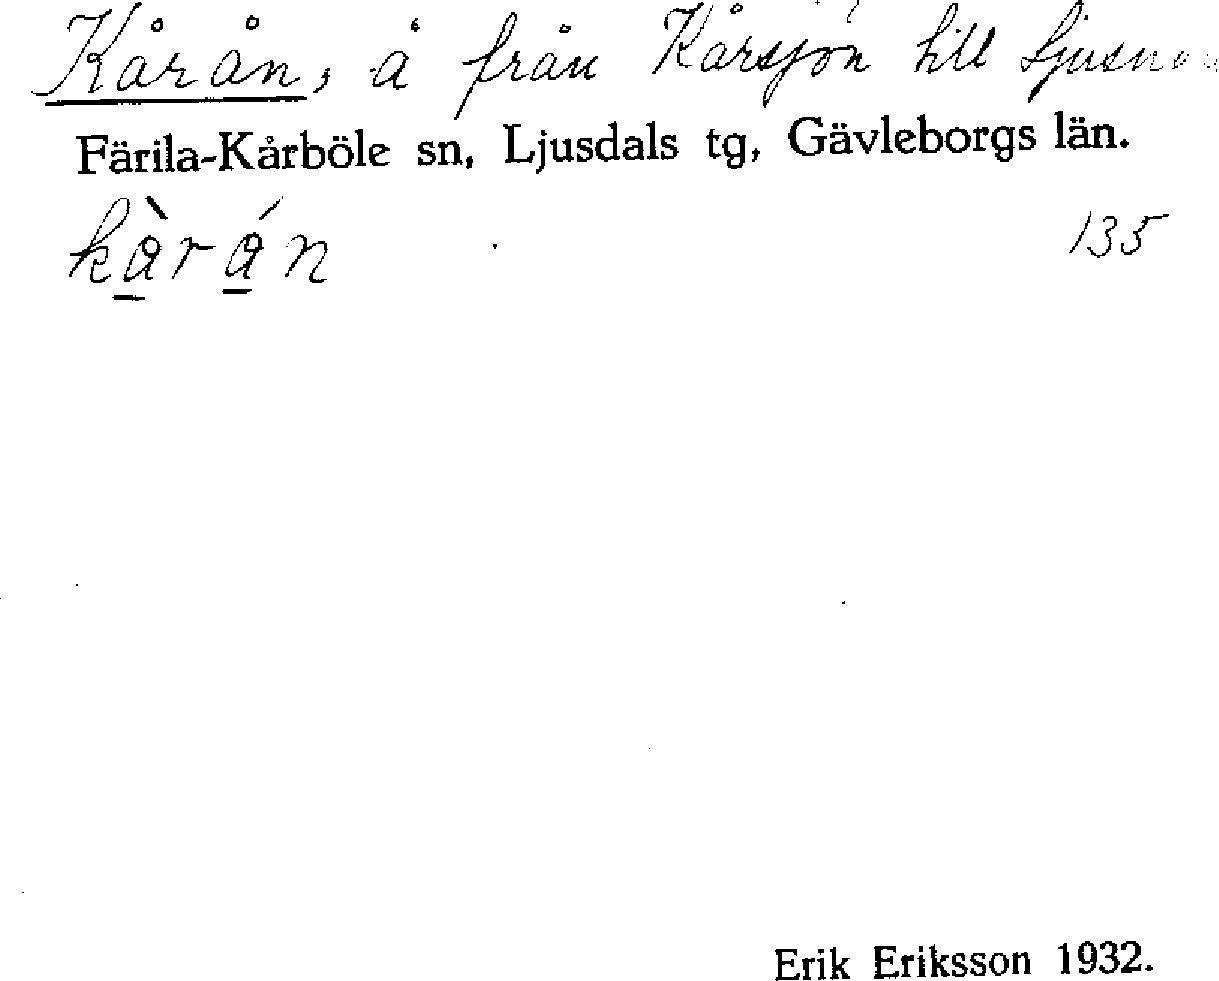 Kårån, å från Kårsjön till Ljusnan
Färila-Kårböle sn, Ljusdals tg, Gävleborgs län.
kå̀rǻn 135
Erik Eriksson 1932.